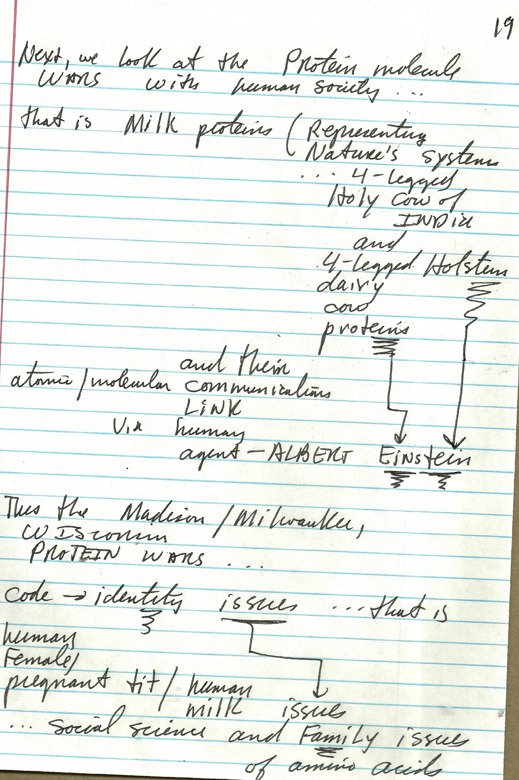 19
Next, we look at the Protein molecule
WARS with human society ...
that is Milk proteins (Representing
Nature's systems
... 4-legged
Holy Cow of
INDIA
and
4-legged Holstein
dairy
cow
proteins
and their
atomic/molecular communications
LINK
Via human
agent - ALBERT Einstein
Thus the Madison/Milwaukee,
Wisconsin
PROTEIN WARS ...
code → identity issues ... that is
human
Female/
pregnant tit/human
milk issues
... social science and Family issues
of amino acids